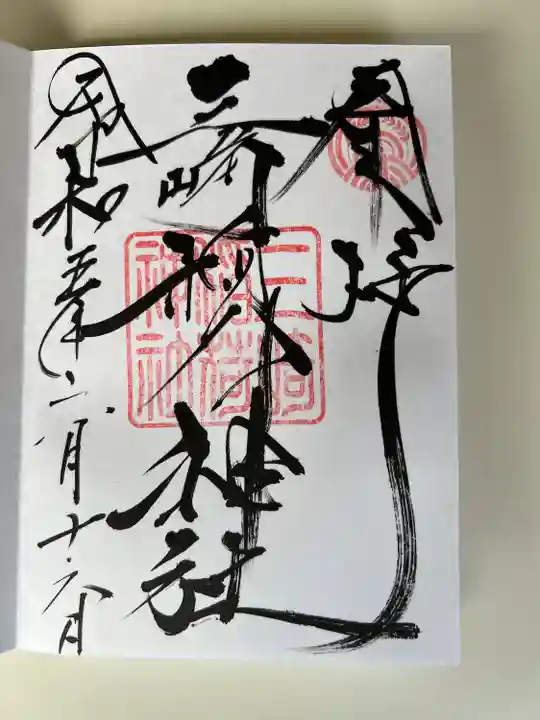 奉拝
三崎稲荷神社
令和五年二月十六日
三崎
稲荷
神社